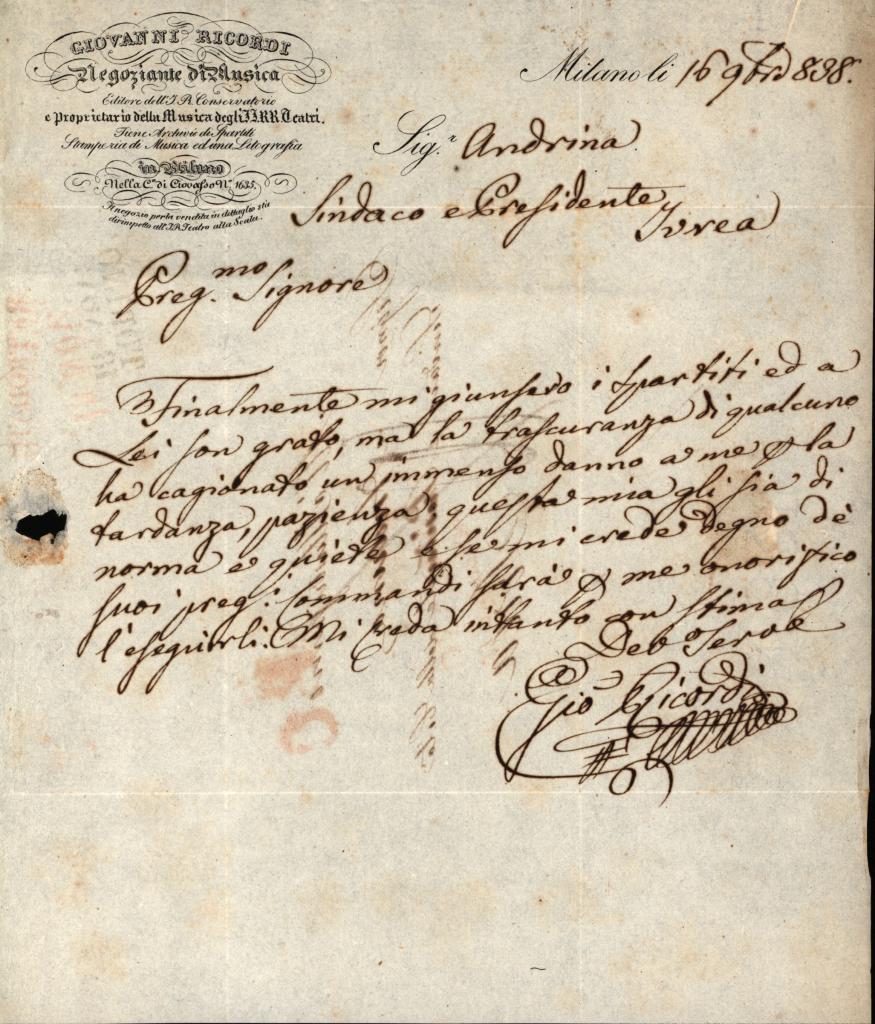 GIOVANNI RICORDI
Negoziante di Musica
Editore dell'I. R. Conservatorio
e Proprietario della Musica degl'II. RR. Teatri.
Tiene Archivio di Spartiti
Stamperia di Musica ed una Litografia
in Milano
Nella C.ª di Ciovasso N.º 1635.
Il negozio per la vendita in dettaglio sta
dirimpetto all'I. R. Teatro alla Scala.
Milano li 16 9bre 838.
Sig.r Andrina
Sindaco e Presidente
Ivrea
Preg.mo Signore
Finalmente mi giunsero i spartiti ed a
Lei son grato, ma la trascuranza di qualcuno
ha cagionato un immenso danno a me p la
tardanza, pazienza: questa mia gli sia di
norma e quiete e se mi crede degno de
suoi preg.i Commandi sarà p me onorifico
l'eseguirli. Mi creda intanto con stima
Devo Serve
Gio Ricordi